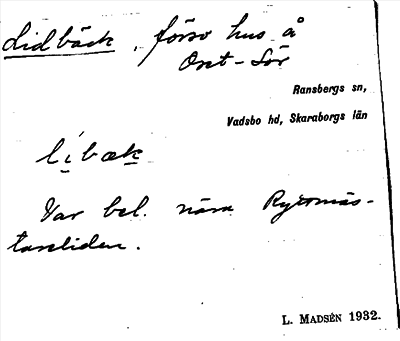 Lidbäck, försv hus å
Ost-Sör
Ransbergs sn,
Vadsbo hd, Skaraborgs län
líbæk
Var bel. nära Ryttmäs-
tareliden.
L. MADSÉN 1932.